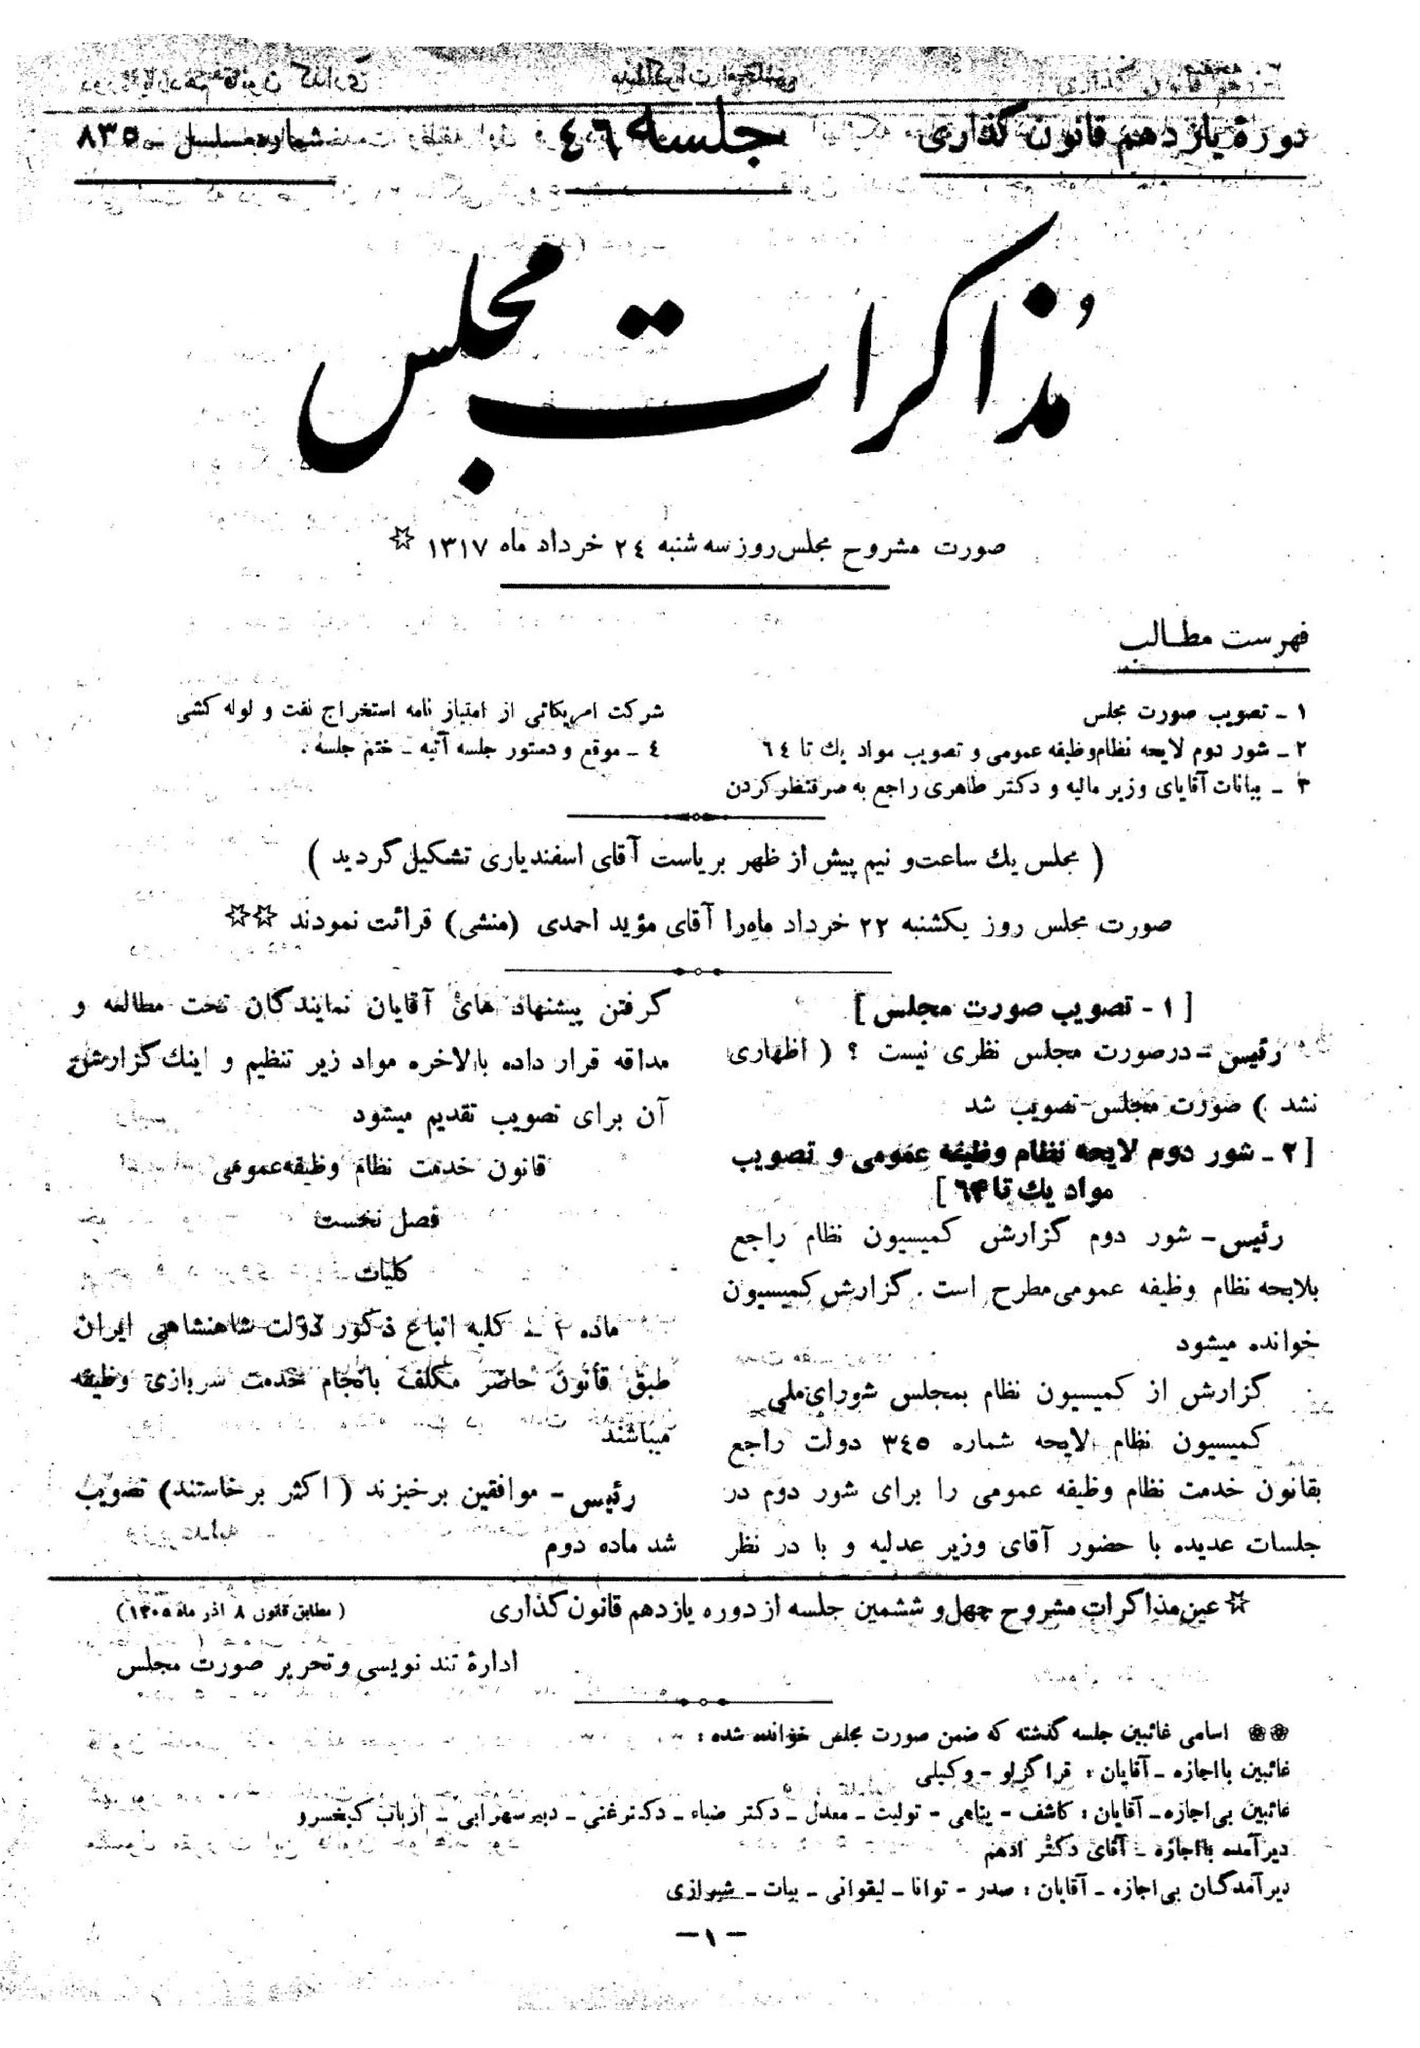 دورهٔ یازدهم قانون گذاری
جلسه ٤٦
شماره مسلسل ـ ٨٣٥
مذاکرات مجلس
صورت مشروح مجلس روز سه شنبه ٢٤ خرداد ماه ١٣١٧ ☆
فهرست مطالب
١ ـ تصویب صورت مجلس
٢ ـ شور دوم لایحه نظام وظیفه عمومی و تصویب مواد یك تا ٦٤
٣ ـ بیانات آقایای وزیر مالیه و دکتر طاهری راجع به صرفنظر کردن
شرکت امریکائی از امتیاز نامه استخراج نفت و لوله کشی
٤ ـ موقع و دستور جلسه آتیه ـ ختم جلسه .
( مجلس یك ساعت و نیم پیش از ظهر بریاست آقای اسفندیاری تشکیل گردید )
صورت مجلس روز یکشنبه ٢٢ خرداد ماه را آقای مؤید احمدی (منشی) قرائت نمودند ☆☆
[ ١ - تصویب صورت مجلس ]
رئیس - درصورت مجلس نظری نیست ؟ ( اظهاری
نشد ) صورت مجلس تصویب شد
[ ٢ ـ شور دوم لایحه نظام وظیفه عمومی و تصویب
مواد یك تا ٦٤ ]
رئیس - شور دوم گزارش کمیسیون نظام راجع
بلایحه نظام وظیفه عمومی مطرح است . گزارش کمیسیون
خوانده میشود
گزارش از کمیسیون نظام بمجلس شورای ملی
کمیسیون نظام لایحه شماره ٣٤٥ دولت راجع
بقانون خدمت نظام وظیفه عمومی را برای شور دوم در
جلسات عدیده با حضور آقای وزیر عدلیه و با در نظر
گرفتن پیشنهاد های آقایان نمایندگان تحت مطالعه و
مداقه قرار داده بالاخره مواد زیر تنظیم و اینك گزارش
آن برای تصویب تقدیم میشود
قانون خدمت نظام وظیفه عمومی
فصل نخست
کلیات
ماده ١ ـ کلیه اتباع ذکور دولت شاهنشاهی ایران
طبق قانون حاضر مکلف بانجام خدمت سربازی وظیفه
میباشند
رئیس - موافقین برخیزند ( اکثر برخاستند ) تصویب
شد ماده دوم
☆ عین مذاکرات مشروح چهل و ششمین جلسه از دوره یازدهم قانون گذاری
( مطابق قانون ٨ آذر ماه ١٣٠٥ )
ادارهٔ تند نویسی و تحریر صورت مجلس
❀❀ اسامی غائبین جلسه گذشته که ضمن صورت مجلس خوانده شده :
غائبین با اجازه ـ آقایان : قراگزلو - وکیلی
غائبین بی اجازه ـ آقایان : کاشف - پناهی - تولیت - معدل ـ دکتر ضیاء ـ دکتر غنی ـ دبیر سهرابی ـ ارباب کیخسرو
دیر آمده با اجازه ـ آقای دکتر ادهم
دیر آمدگان بی اجازه ـ آقایان : صدر - توانا ـ لیقوانی ـ بیات ـ شیرازی
ـ ١ ـ